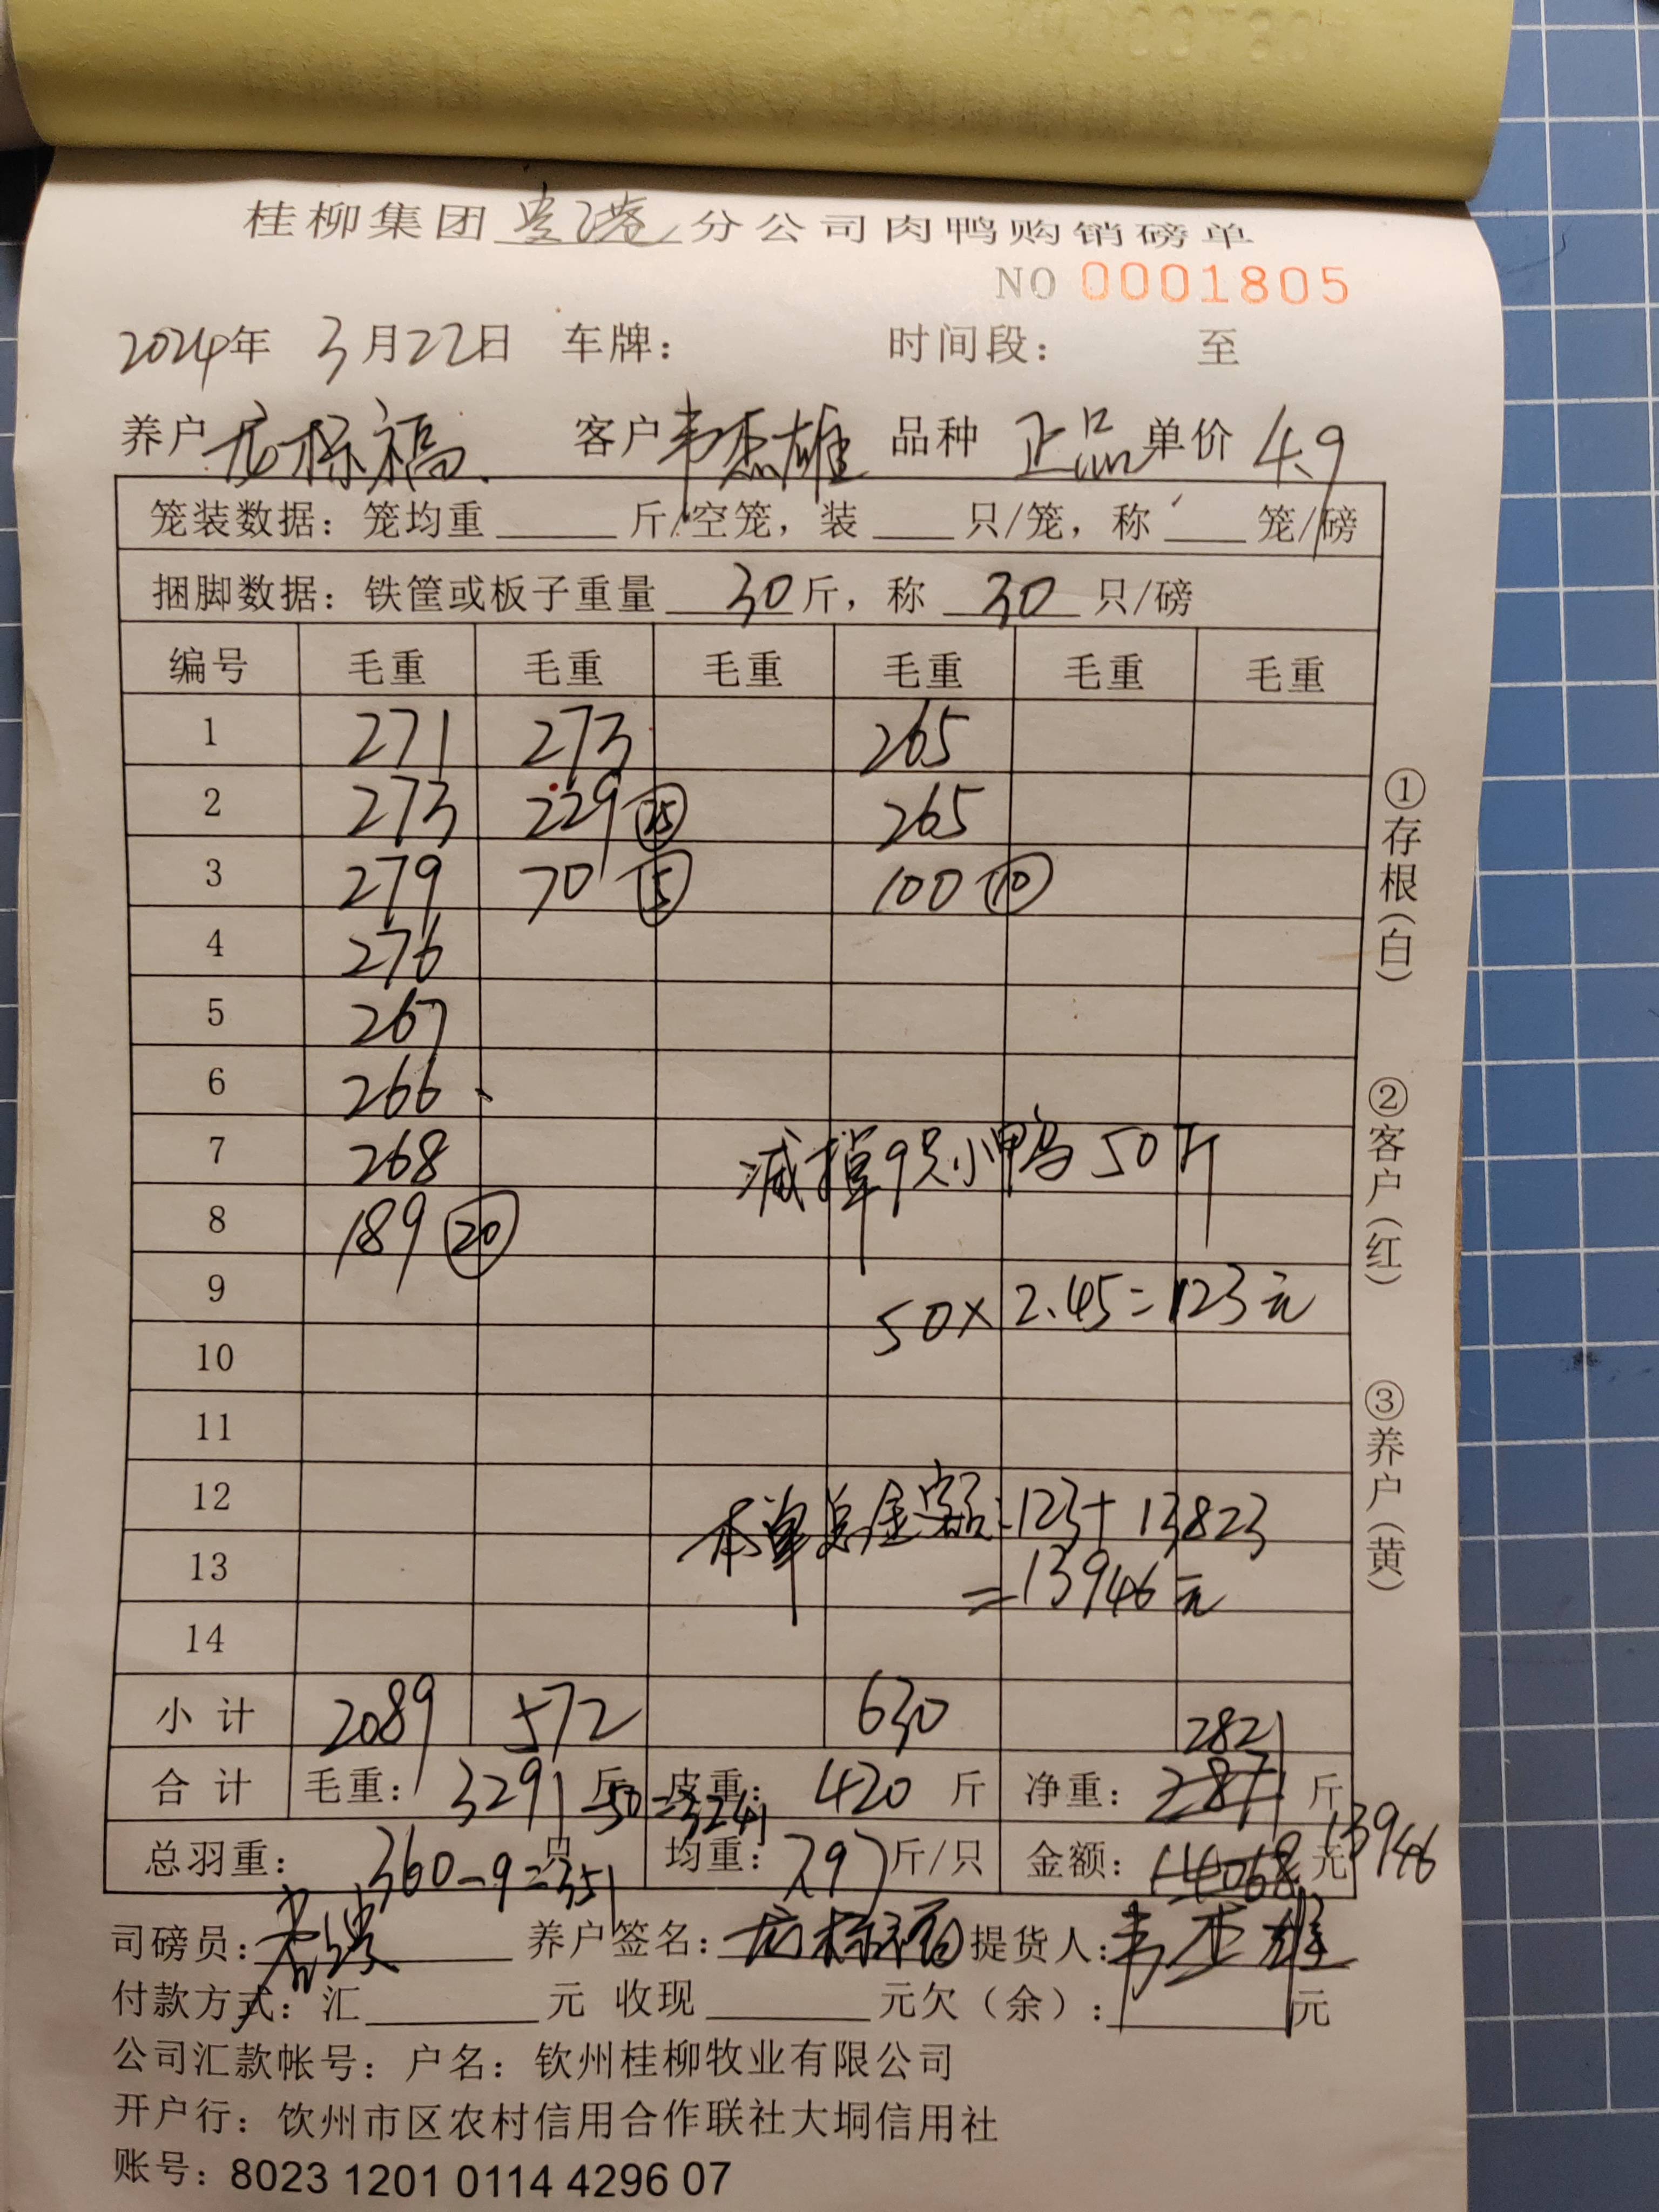 桂柳集团贵港分公司肉鸭购销磅单
NO 0001805
2024年 3月22日 车牌： 时间段： 至
养户 标福 客户 韦杰雄 品种 正品 单价 4.9
笼装数据：笼均重 斤/空笼，装 只/笼，称 笼/磅
捆脚数据：铁筐或板子重量 30 斤，称 30 只/磅
编号 毛重 毛重 毛重 毛重 毛重 毛重
1 271 273 265
2 273 229 25 265
3 279 70 5 100 10
4 276
5 267
6 266
7 268 减掉9只小鸭50斤
8 189 20
9 50×2.45=123元
10
11
12 本单总金额：123+13823
13 =13946元
14
小计 2089 572 630 2821
合计 毛重：3291斤-50=3241 皮重：420斤 净重：2871斤
总羽重：360-9=351只 均重：7.97斤/只 金额：14068元 13946
司磅员： 养户签名：标福 提货人：韦杰雄
付款方式：汇 元 收现 元欠（余）： 元
公司汇款帐号：户名：钦州桂柳牧业有限公司
开户行：饮州市区农村信用合作联社大垌信用社
账号：8023 1201 0114 4296 07
①存根（白）
②客户（红）
③养户（黄）